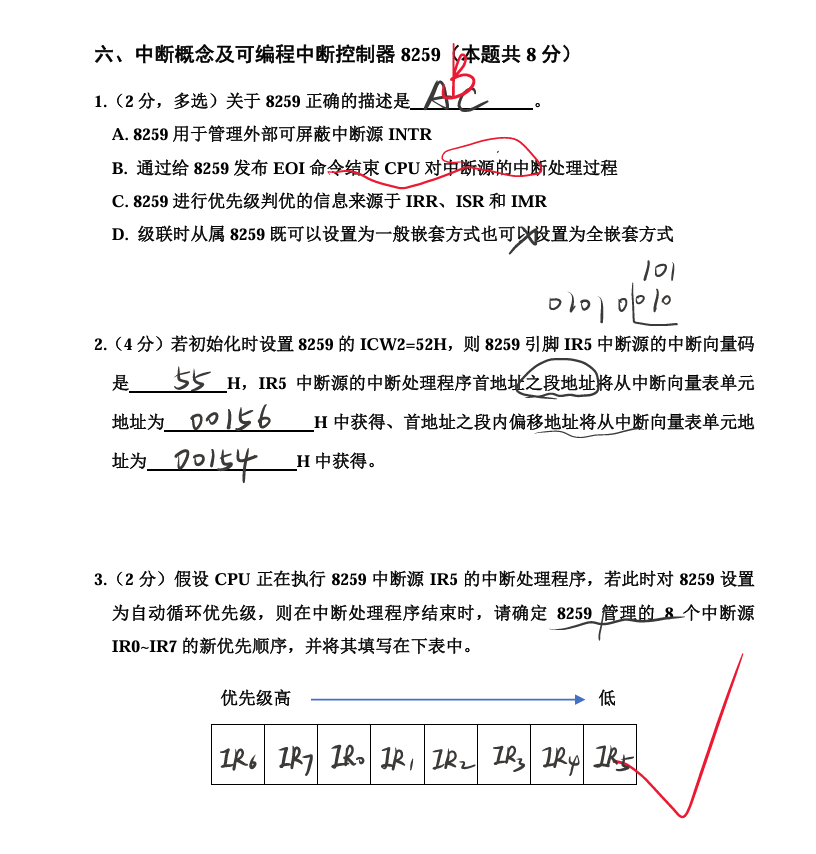 六、中断概念及可编程中断控制器 8259（本题共 8 分）
1.（2 分，多选）关于 8259 正确的描述是 ABC 。
A. 8259 用于管理外部可屏蔽中断源 INTR
B. 通过给 8259 发布 EOI 命令结束 CPU 对中断源的中断处理过程
C. 8259 进行优先级判优的信息来源于 IRR、ISR 和 IMR
D. 级联时从属 8259 既可以设置为一般嵌套方式也可以设置为全嵌套方式
101
0101 0010
2.（4 分）若初始化时设置 8259 的 ICW2=52H，则 8259 引脚 IR5 中断源的中断向量码
是 55 H，IR5 中断源的中断处理程序首地址之段地址将从中断向量表单元
地址为 00156 H 中获得、首地址之段内偏移地址将从中断向量表单元地
址为 00154 H 中获得。
3.（2 分）假设 CPU 正在执行 8259 中断源 IR5 的中断处理程序，若此时对 8259 设置
为自动循环优先级，则在中断处理程序结束时，请确定 8259 管理的 8 个中断源
IR0~IR7 的新优先顺序，并将其填写在下表中。
优先级高 低
IR6 IR7 IR0 IR1 IR2 IR3 IR4 IR5